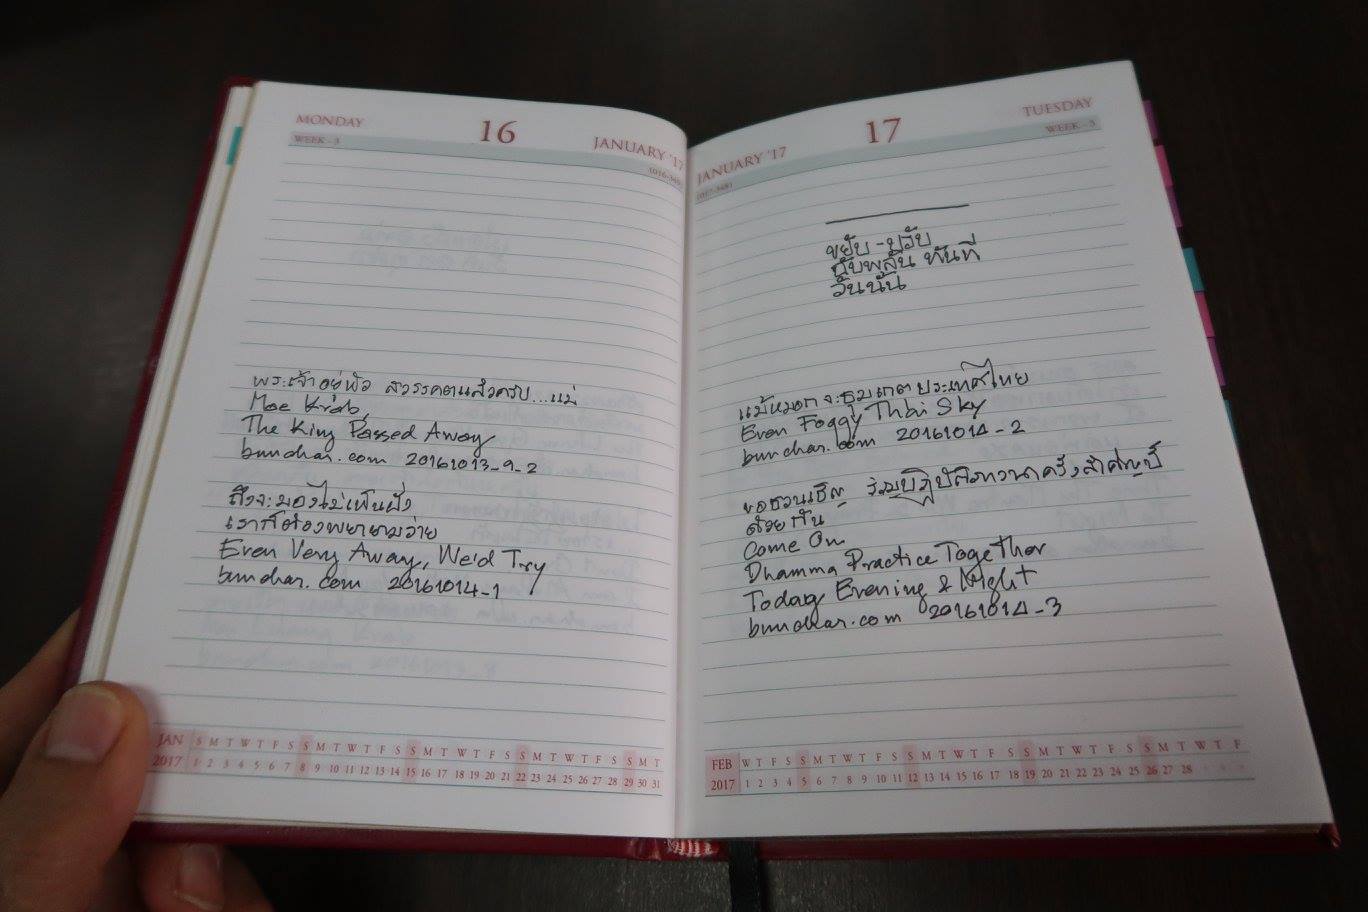 MONDAY
16
JANUARY '17
WEEK - 3
(016-349)
พระเจ้าอยู่หัว สวรรคตแล้วครับ...แม่
Mae Krab,
The King Passed Away
bunchar.com 20161013_9_2
ถึงจะมองไม่เห็นฝั่ง
เราก็ต้องพยายามว่าย
Even Very Away, We'd Try
bunchar.com 20161014-1
JAN S M T W T F S S M T W T F S S M T W T F S S M T W T F S S M T
2017 1 2 3 4 5 6 7 8 9 10 11 12 13 14 15 16 17 18 19 20 21 22 23 24 25 26 27 28 29 30 31
TUESDAY
17
JANUARY '17
WEEK - 3
(017-348)
ขยับ-ปรับ
ฉับพลัน ทันที
วันนั้น
แม้หมอกจะคลุม ประเทศไทย
Even Foggy Thai Sky
bunchar.com 20161014-2
ขอชวนเชิญ ร่วมปฏิบัติภาวนาครั้งสำคัญนี้
ด้วยกัน
Come On
Dhamma Practice Together
Today Evening & Night
bunchar.com 20161014-3
FEB W T F S S M T W T F S S M T W T F S S M T W T F S S M T W T F
2017 1 2 3 4 5 6 7 8 9 10 11 12 13 14 15 16 17 18 19 20 21 22 23 24 25 26 27 28